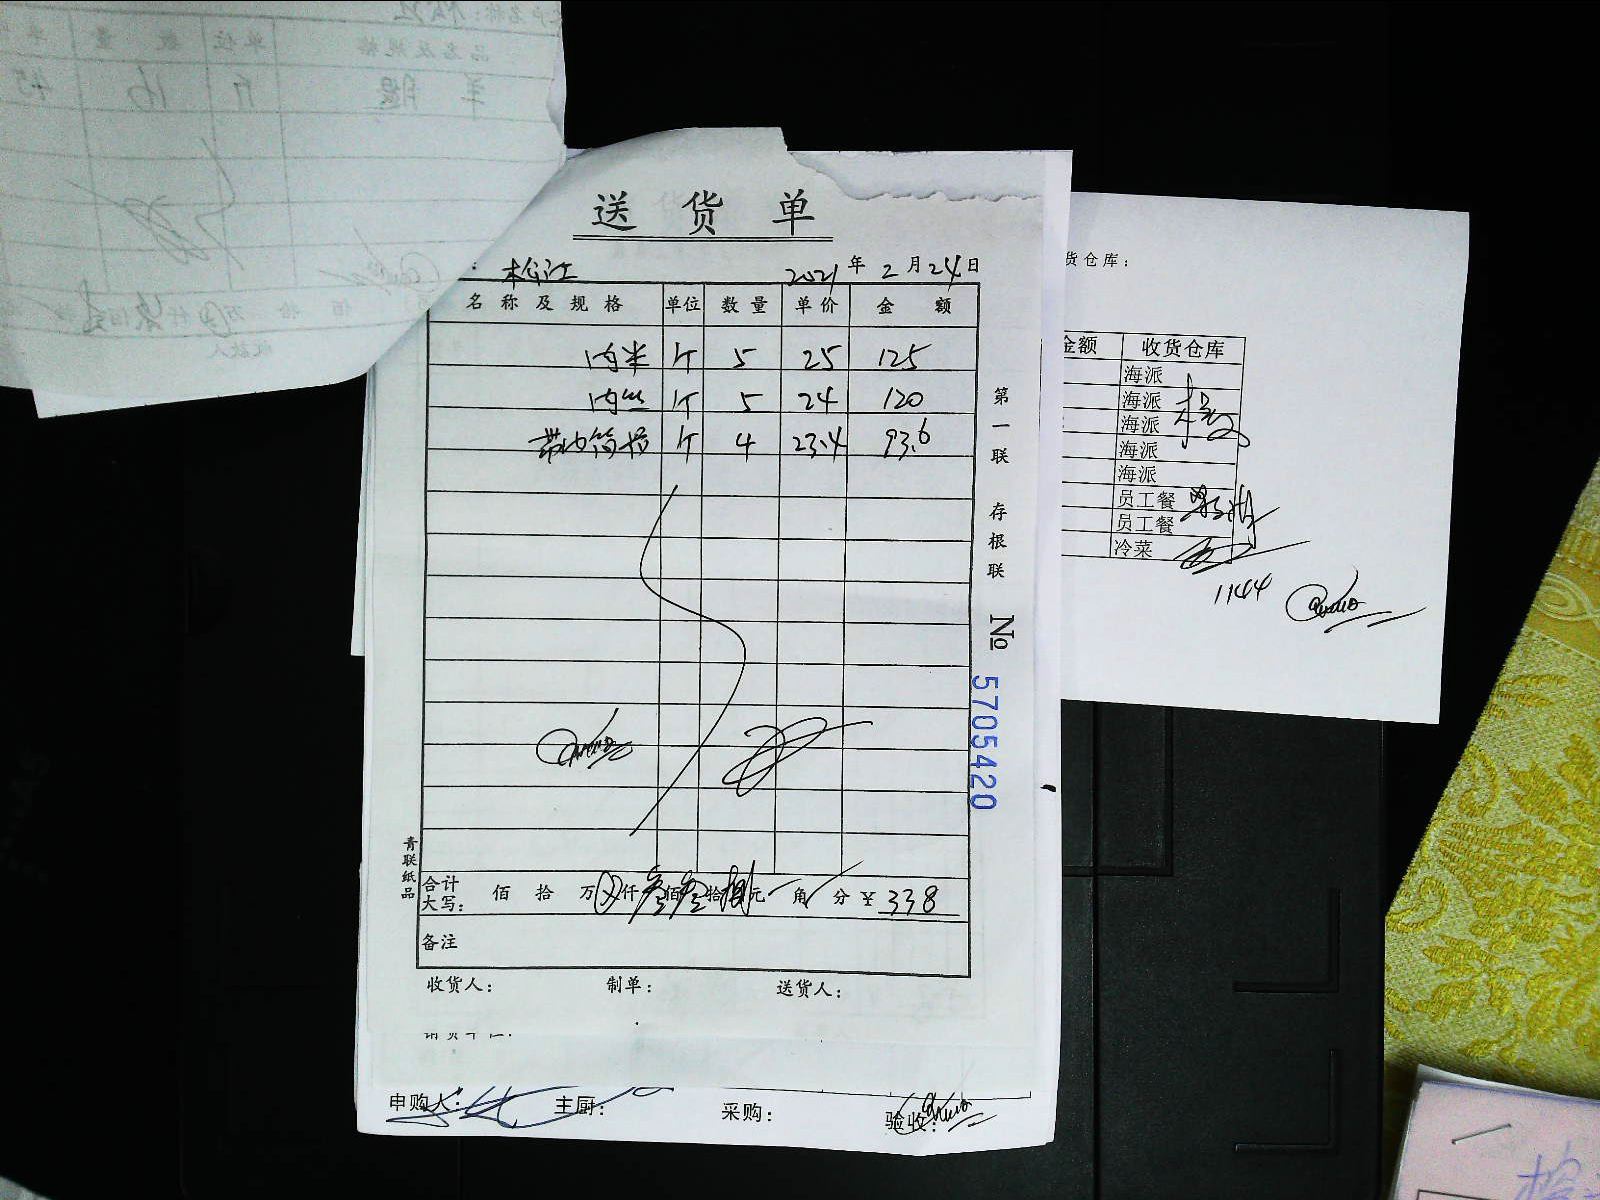 送货单
松江 2021年2月24日
名称及规格 单位 数量 单价 金额
肉米 斤 5 25 125
肉丝 斤 5 24 120
带皮 斤 4 23.4 93.6
第一联 存根联
№ 5705420
青联纸品
合计大写: 佰 拾 万 仟 叁佰叁拾捌元 角 分 ¥338
备注
收货人: 制单: 送货人:
申购人: 主厨: 采购: 验收:
货仓库:
金额 收货仓库
海派
海派
海派
海派
海派
员工餐
员工餐
冷菜
1144
户名称:
品名及规格 单位 数量
羊腿 斤 16 45